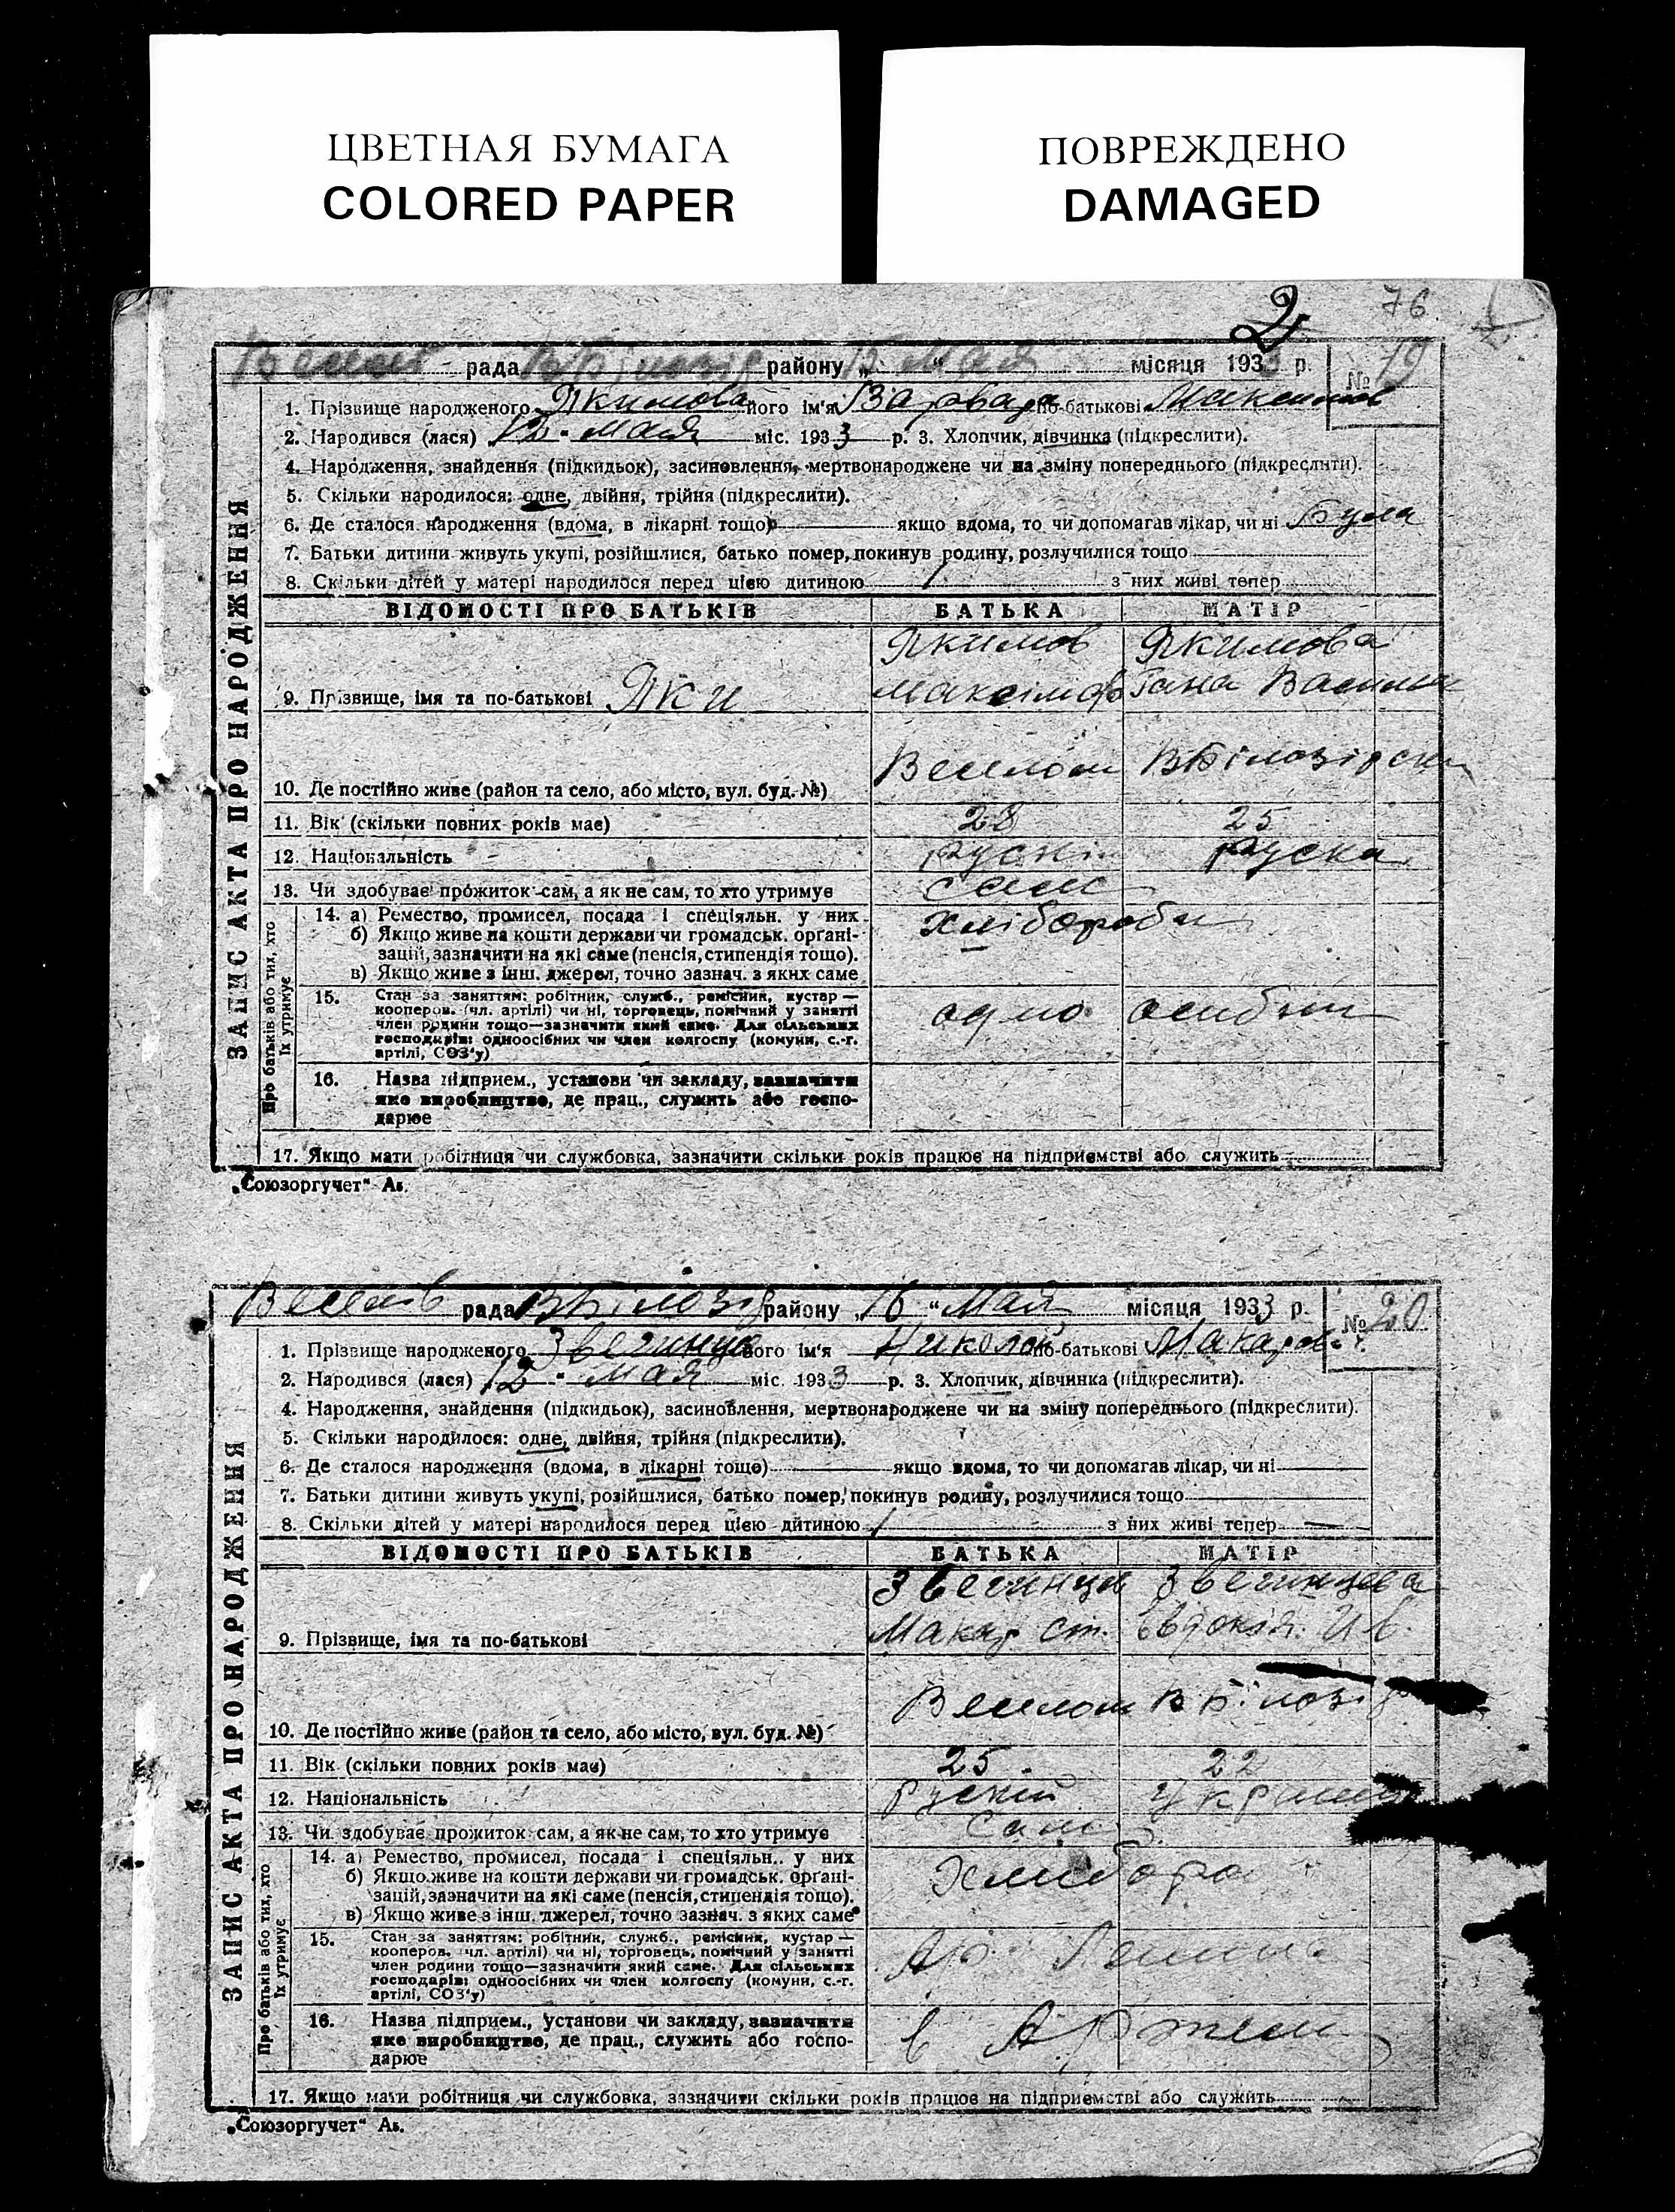 ЦВЕТНАЯ БУМАГА
COLORED PAPER
ПОВРЕЖДЕНО
DAMAGED
2 76
рада В Білозір району „ мая місяця 1933 р. № 19
ЗАПИС АКТА ПРО НАРОДЖЕННЯ
1. Прізвище народженого Якимова його ім'я Варвара по-батькові
2. Народився (лася) мая міс. 1933 р. 3. Хлопчик, дівчинка (підкреслити).
4. Народження, знайдення (підкидьок), засиновлення, мертвонароджене чи на зміну попереднього (підкреслити).
5. Скільки народилося: одне, двійня, трійня (підкреслити).
6. Де сталося народження (вдома, в лікарні тощо) якщо вдома, то чи допомагав лікар, чи ні Була
7. Батьки дитини живуть укупі, розійшлися, батько помер, покинув родину, розлучилися тощо
8. Скільки дітей у матері народилося перед цією дитиною 1 з них живі тепер
ВІДОМОСТІ ПРО БАТЬКІВ БАТЬКА МАТІР
Якимов Якимова
9. Прізвище, імя та по-батькові Яки
10. Де постійно живе (район та село, або місто, вул. буд. №)
11. Вік (скільки повних років має) 28 25
12. Національність Руска
13. Чи здобуває прожиток сам, а як не сам, то хто утримує сам
Про батьків або тих, хто їх утримує
14. а) Ремество, промисел, посада і спеціяльн. у них
б) Якщо живе на кошти держави чи громадськ. органі-
зацій, зазначити на які саме (пенсія, стипендія тощо).
в) Якщо живе з інш. джерел, точно зазнач. з яких саме
15. Стан за заняттям: робітник, служб., ремісник, кустар —
кооперов. (чл. артілі) чи ні, торговець, помічний у занятті
член родини тощо—зазначити який саме. Для сільських
господарів: одноосібних чи член колгоспу (комуни, с.-г.
артілі, СОЗ'у)
16. Назва підприєм., установи чи закладу, зазначити
яке виробництво, де прац., служить або госпо-
дарює
17. Якщо мати робітниця чи службовка, зазначити скільки років працює на підприємстві або служить
„Союзоргучет“
рада ВБілозір району „16“ Мая місяця 1933 р. № 20
ЗАПИС АКТА ПРО НАРОДЖЕННЯ
1. Прізвище народженого його ім'я Николай по-батькові Макаров
2. Народився (лася) 12 мая міс. 1933 р. 3. Хлопчик, дівчинка (підкреслити).
4. Народження, знайдення (підкидьок), засиновлення, мертвонароджене чи на зміну попереднього (підкреслити).
5. Скільки народилося: одне, двійня, трійня (підкреслити).
6. Де сталося народження (вдома, в лікарні тощо) якщо вдома, то чи допомагав лікар, чи ні
7. Батьки дитини живуть укупі, розійшлися, батько помер, покинув родину, розлучилися тощо
8. Скільки дітей у матері народилося перед цією дитиною 1 з них живі тепер —
ВІДОМОСТІ ПРО БАТЬКІВ БАТЬКА МАТІР
Звегинцева
9. Прізвище, імя та по-батькові Макар Ст. Ив.
В Білозір
10. Де постійно живе (район та село, або місто, вул. буд. №)
11. Вік (скільки повних років має) 25 22
12. Національність Рускій
13. Чи здобуває прожиток сам, а як не сам, то хто утримує сам
Про батьків або тих, хто їх утримує
14. а) Ремество, промисел, посада і спеціяльн. у них
б) Якщо живе на кошти держави чи громадськ. органі-
зацій, зазначити на які саме (пенсія, стипендія тощо).
в) Якщо живе з інш. джерел, точно зазнач. з яких саме
15. Стан за заняттям: робітник, служб., ремісник, кустар —
кооперов. чл. артілі) чи ні, торговець, помічний у занятті
член родини тощо—зазначити який саме. Для сільських
господарів: одноосібних чи член колгоспу (комуни, с.-г.
артілі, СОЗ'у)
16. Назва підприєм., установи чи закладу, зазначити
яке виробництво, де прац., служить або госпо-
дарює
в
17. Якщо мати робітниця чи службовка, зазначити скільки років працює на підприємстві або служить
„Союзоргучет“